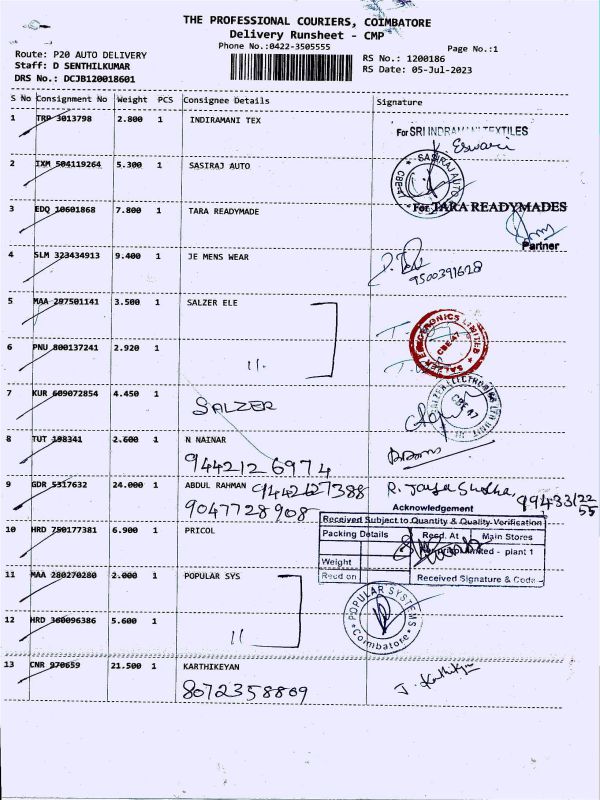 THE PROFESSIONAL COURIERS, COIMBATORE
Delivery Runsheet - CMP
Phone No.:0422-3505555
Page No.:1
Route: P20 AUTO DELIVERY
RS No.: 1200186
Staff: D SENTHILKUMAR
RS Date: 05-Jul-2023
DRS No.: DCJB120018601
S No Consignment No Weight PCS Consignee Details Signature
1 TRP 3013798 2.800 1 INDIRAMANI TEX
For SRI INDRAMANI TEXTILES
Eswari
2 IXM 504119264 5.300 1 SASIRAJ AUTO
SASIRAJ AUTO
CBE-47
3 EDQ 10601868 7.800 1 TARA READYMADE
For TARA READYMADES
Partner
4 SLM 323434913 9.400 1 JE MENS WEAR
9500391628
5 MAA 297501141 3.500 1 SALZER ELE
SALZER ELECTRONICS LIMITED
CBE-47
6 PNU 800137241 2.920 1
11.
7 KUR 609072854 4.450 1
SALZER
SALZER ELECTRONICS LTD UNIT III
CBE 47
8 TUT 198341 2.600 1 N NAINAR
9442126974
9 GDR 5317632 24.000 1 ABDUL RAHMAN 9442627388
R. Jaya Sudha, 99433/22
55
9047728908
Acknowledgement
Received Subject to Quantity & Quality Verification
10 HRD 750177381 6.900 1 PRICOL
Packing Details Recd. At Main Stores
Limited - plant 1
Weight
Recd on Received Signature & Code
11 MAA 280270280 2.000 1 POPULAR SYS
POPULAR SYSTEMS
Coimbatore
12 HRD 360096386 5.600 1
11
13 CNR 970659 21.500 1 KARTHIKEYAN
8072358809
J. Karthikeyan